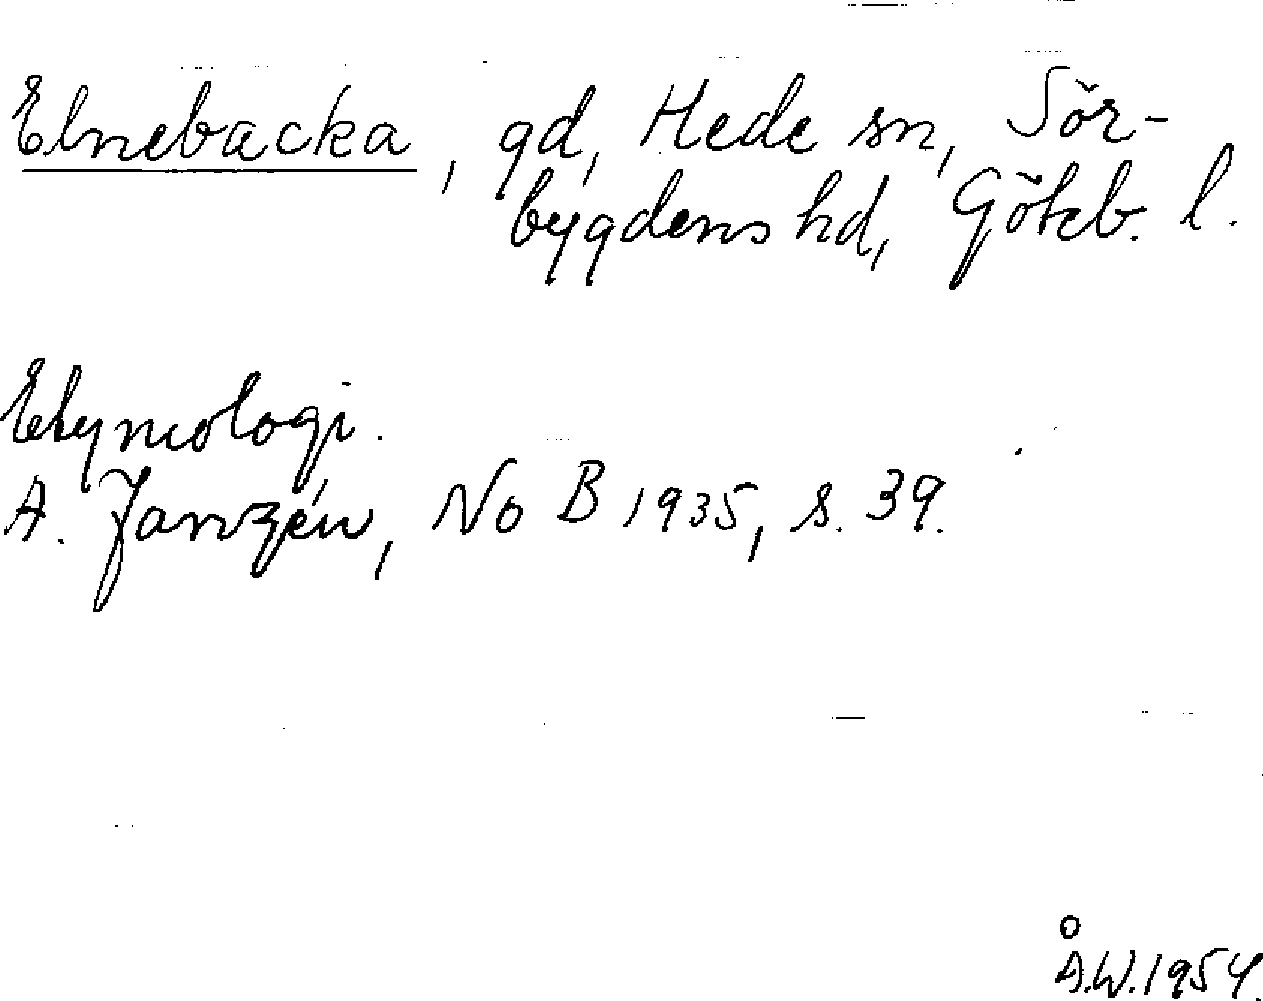 Elnebacka, gd, Hede sn, Sör-
bygdens hd, Göteb. l.
Etymologi.
A. Janzén, NoB 1935, s. 39.
Å.W. 1954.